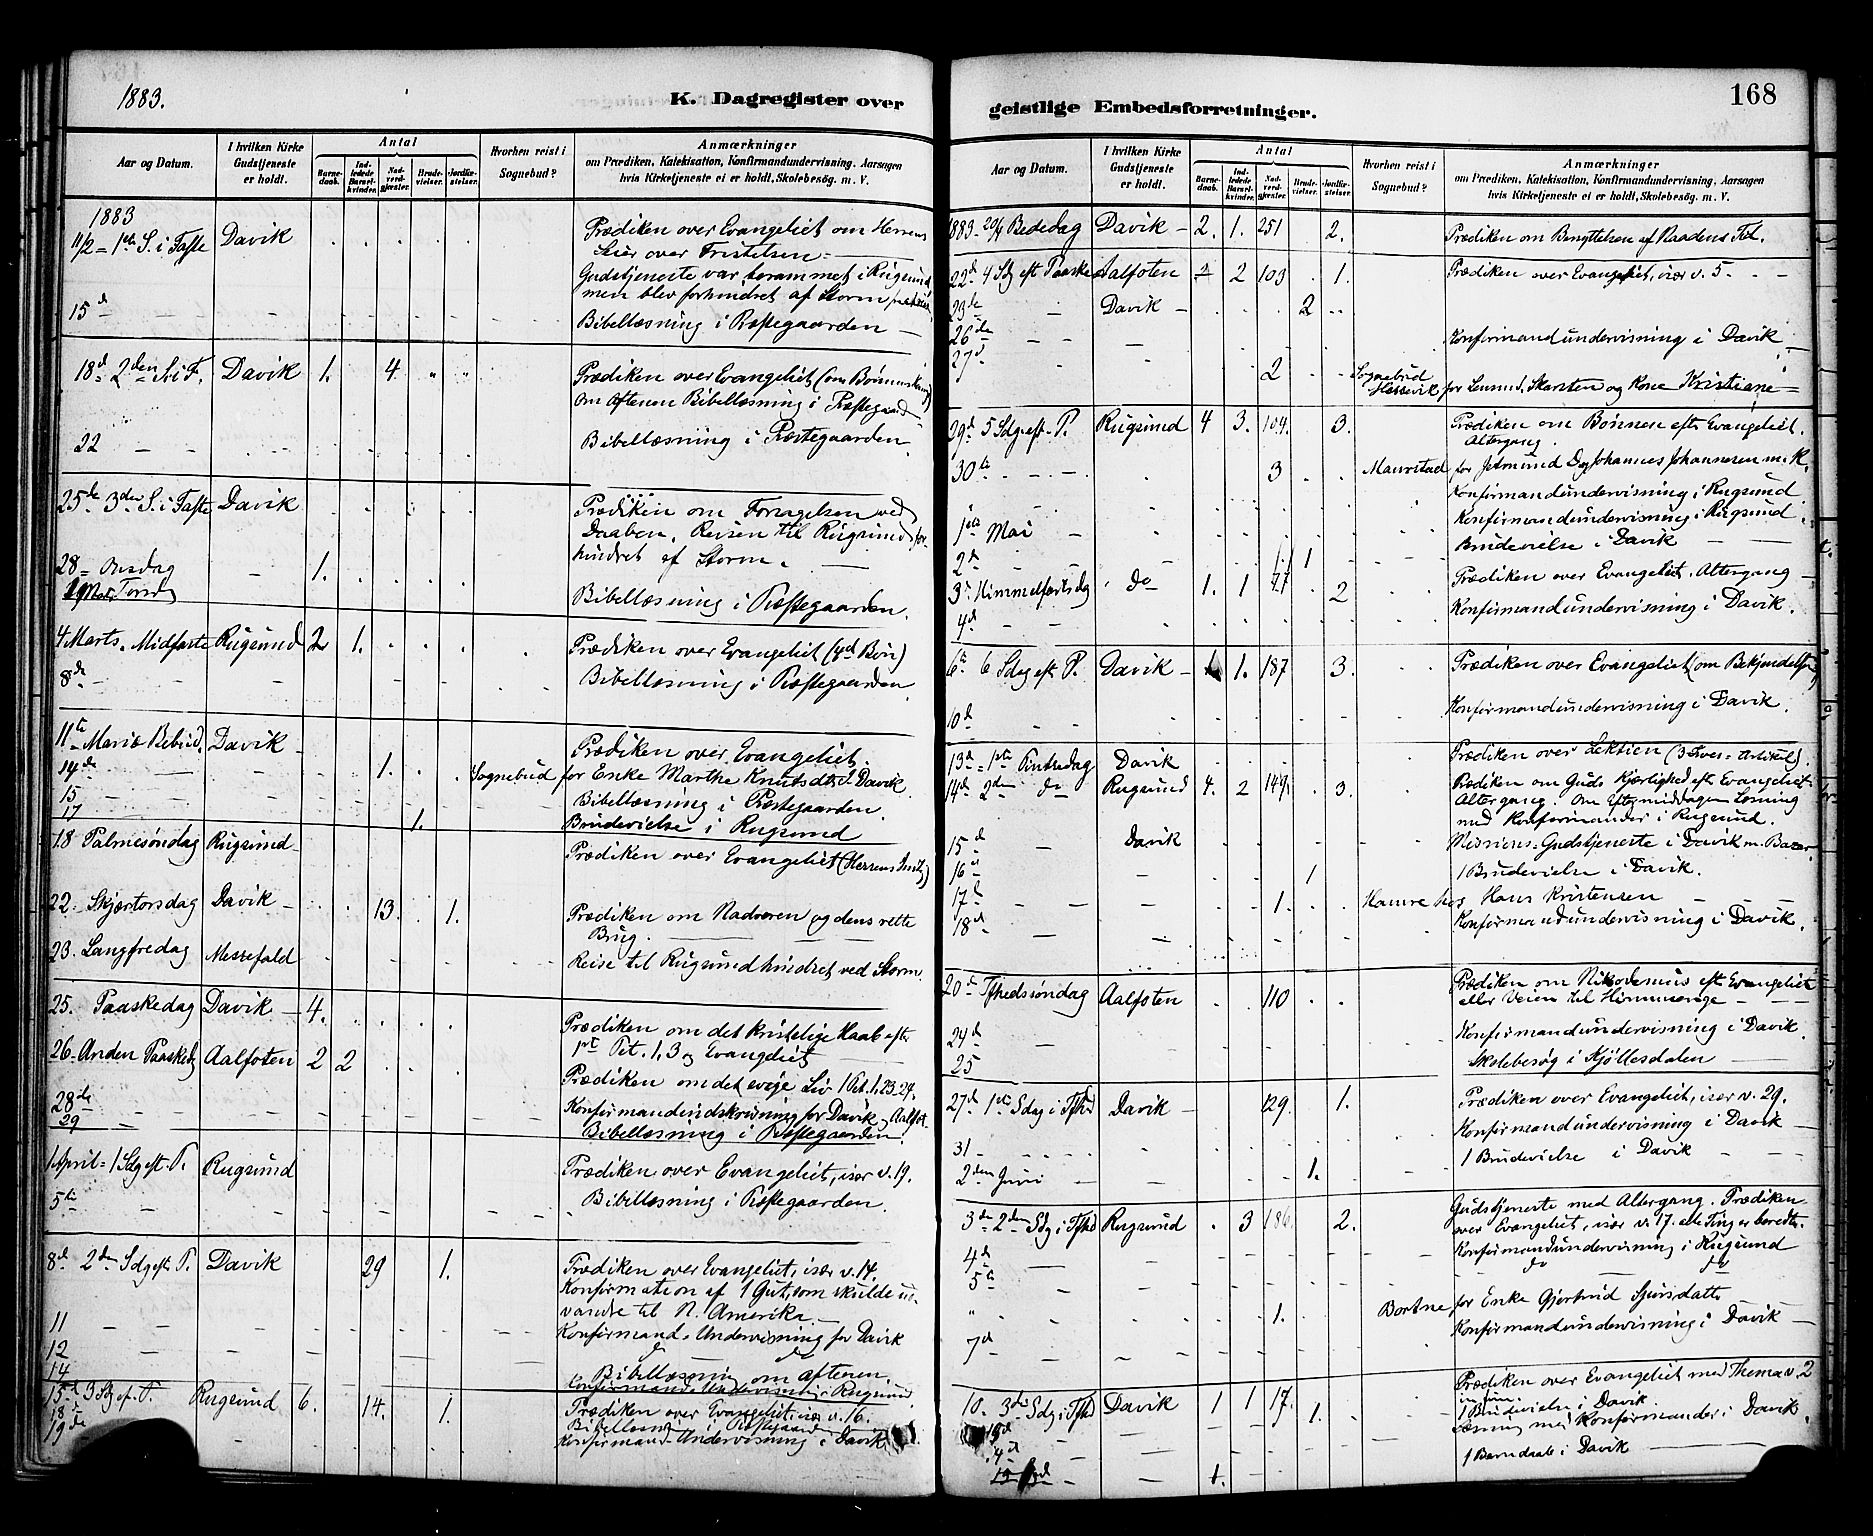 1883.
K. Dagregister over
Aar og Datum.
I hvilken Kirke Gudstjeneste er holdt.
Antal
Barne-daab.
Ind-ledede Barsel-kvinder.
Nad-verd-gjæster.
Brude-vielser.
Jordfæ-stelser.
Hvorhen reist i Sognebud?
Anmærkninger
om Prædiken, Katekisation, Konfirmandundervisning. Aarsagen
hvis Kirketjeneste ei er holdt, Skolebesög. m. V.
1883
11/2 = 1ste S. i Faste Davik Prædiken over Evangeliet om Herrens
Seier over Fristelsen =
Gudstjeneste var berammet i Rugsund
men blev forhindret af Storm
15de Bibellæsning i Præstegaarden
18de 2den S. i F. Davik 1. 4 Prædiken over Evangeliet
Om Aftenen Bibellæsning i Præstegaard
22 Bibellæsning i Præstegaarden
25de 3die S. i Faste Davik Prædiken om Forsagelsen ved
Daaben. Reisen til Rugsund for-
hindret af Storm.
28 Onsdag 1.
1 Marts Torsd Bibellæsning i Præstegaarden.
4 Marts. Midfaste Rugsund 2 1. Prædiken over Evangeliet (4de Bøn)
8de Bibellæsning i Præstegaarden
11te Mariæ Bebud. Davik Prædiken over Evangeliet.
14de 1. Sognebud for Enke Marthe Knutsdtr. Davik
15 Bibellæsning i Præstegaarden.
17 1. Brudevielse i Rugsund
18 Palmesøndag Rugsund Prædiken over Evangeliet
22. Skjærtorsdag Davik 13. 1. Prædiken om Nadveren og dens rette
Brug.
23. Langfredag Messefald Reise til Rugsund hindret ved Storm.
25. Paaskedag Davik 4. Prædiken om det kristelige Haab efter
1ste Pet. 1,3 og Evangeliet
26. Anden Paaskedg Aalfoten 2 2 Prædiken om det evige Liv 1 Pet. 1, 23-24.
28de Konfirmandindskrivning for Davik og Aalfot.
29 Bibellæsning i Præstegaarden.
1 April = 1 Sdg eft. P. Rugsund Prædiken over Evangeliet, især v. 19.
5te Bibellæsning i Præstegaarden.
8de 2den Sdg eft. P. Davik 29 1. Prædiken over Evangeliet, især v. 14.
Konfirmation af 1 Gut, som skulde ud-
vandre til N. Amerika.
11 Konfirmand-Undervisning for Davik
12 do do
14 Bibellæsning om Aftenen.
Konfirmand-Undervisning i Rugsund
15de 3 Sdg ef. P. Rugsund 6. 14. 1. Prædiken over Evangeliet, især v. 16.
18de Bibellæsning i Præstegaard
19de Konfirmand-Undervisning i Davik
geistlige Embedsforretninger.
168
Aar og Datum.
I hvilken Kirke Gudstjeneste er holdt.
Antal
Barne-daab.
Ind-ledede Barsel-kvinder.
Nad-verd-gjæster.
Brude-vielser.
Jordfæ-stelser.
Hvorhen reist i Sognebud?
Anmærkninger
om Prædiken, Katekisation, Konfirmandundervisning, Aarsagen
hvis Kirketjeneste ei er holdt, Skolebesög. m. V.
1883. 20/4 Bededag Davik 2. 1. 251 2. Prædiken om Benyttelsen af Naadens Tid.
22de 4 Sdg eft Paaske Aalfoten 2 2 103 1. Prædiken over Evangeliet, især v. 5.
23de Davik 2
26de Konfirmandundervisning i Davik
27de 2 Sognebud
Hessevik for Skarsten og Kone Kristiane
29de 5 Sdg. eft. P. Rugsund 4 3. 104. 3. Prædiken om Bønnen efter Evangeliet.
Altergang.
30te 3 Maurstad for Jetmund og Johannes Johannesen m. K.
Konfirmandundervisning i Rugsund
1ste Mai Konfirmandundervisning i Rugsund
2de 1 Brudevielse i Davik
3de Himmelfartsdg do 1. 1 77 2 Prædiken over Evangeliet. Altergang
4de Konfirmandundervisning i Davik.
6te 6 Sdag eft P. Davik 1 1. 187 3. Prædiken over Evangeliet (om Bekjendelsen)
10de Konfirmandundervisning i Davik.
13de = 1ste Pintsedag Davik Prædiken over Lektien (3 Troes-Artikel).
14de 2den do Rugsund 4. 2 149. 3. Prædiken om Guds Kjærlighed eft Evangeliet
Altergang. Om Eftermiddagen Læsning
med Konfirmander i Rugsund.
15de Davik Missions-Gudstjeneste i Davik m. Bazar.
16de 1 1 Brudevielse i Davik.
17de 1. Hamre hos Hans Kristensen
18de Konfirmandundervisning i Davik.
20de Tfhedssøndag Aalfoten 110 Prædiken om Nikodemus eft Evangeliet
eller Veien til Himmerige
24de Konfirmandundervisning i Davik
25 Skolebesøg i Kjøllesdalen
27de 1ste Sdag i Tfhd Davik 129. 1. Prædiken over Evangeliet, især v. 29.
31 Konfirmandundervisning i Davik
2den Juni 1. 1 Brudevielse i Davik
3de 2den Sdg i Tfhd Rugsund 3 186. 2. Gudstjeneste med Altergang. Prædiken
over Evangeliet, især v. 17. alle Ting er beredte.
4de Konfirmandundervisning i Rugsund
5te do do
1. Bortne for Enke Gjertrud Sjursdatter
7de Konfirmandundervisning i Davik
10. 3de Sdg i Tfhd Davik 1 1 17. Prædiken over Evangeliet med Thema v. 2
1. 1 Brudevielse i Davik
Læsning med Konfirmander i Davik
1. 1 Barndaab i Davik